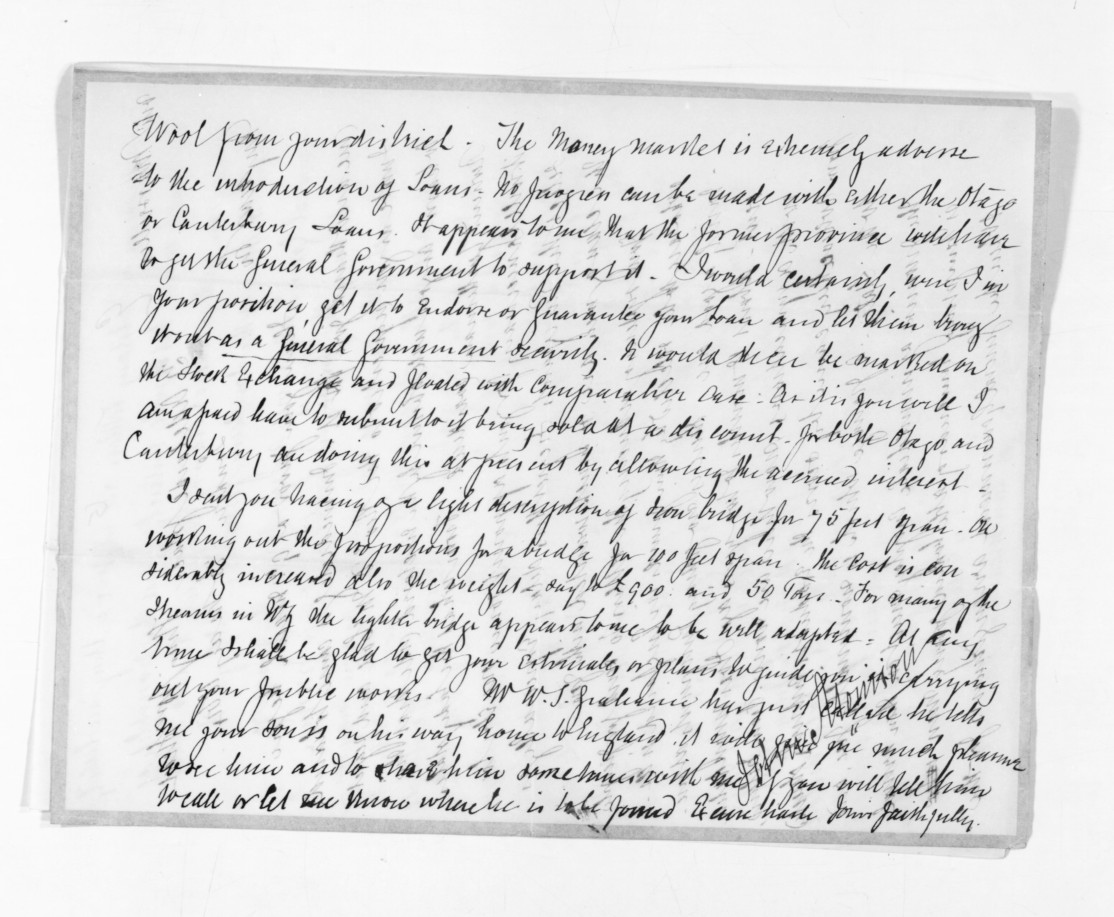 Wool from your district - The Money market is extremely adverse
to the introduction of Loans - No progress can be made with either the Otago
or Canterbury Loans. It appears to me that the former province will have
to get the General Government to support it - I would certainly, were I in
your position get it to Endorse or Guarantee your Loan and let them bring
it out as a General Government security. It would then be marked on
the Stock Exchange and floated with comparative ease - As it is you will I
am afraid have to submit to it being sold at a discount - for both Otago and
Canterbury are doing this at present by allowing the accrued interest -
I send you tracing of a light description of Iron bridge for 75 feet span - On
working out the proportions for a bridge for 100 feet span. the cost is con
siderably increased also the weight - say to £900. and 50 Tons - For many of the
streams in NZ the lighter bridge appears to me to be well adapted - At any
time I shall be glad to get your estimates or plans to guide you in carrying
out your public works Mr W. S. Grahame has just called he tells
me your son is on his way home to England. it will give me much pleasure
to see him and to have him sometimes with me if you will tell him
to call or let me know where he is to be found Excuse haste Yours faithfully.